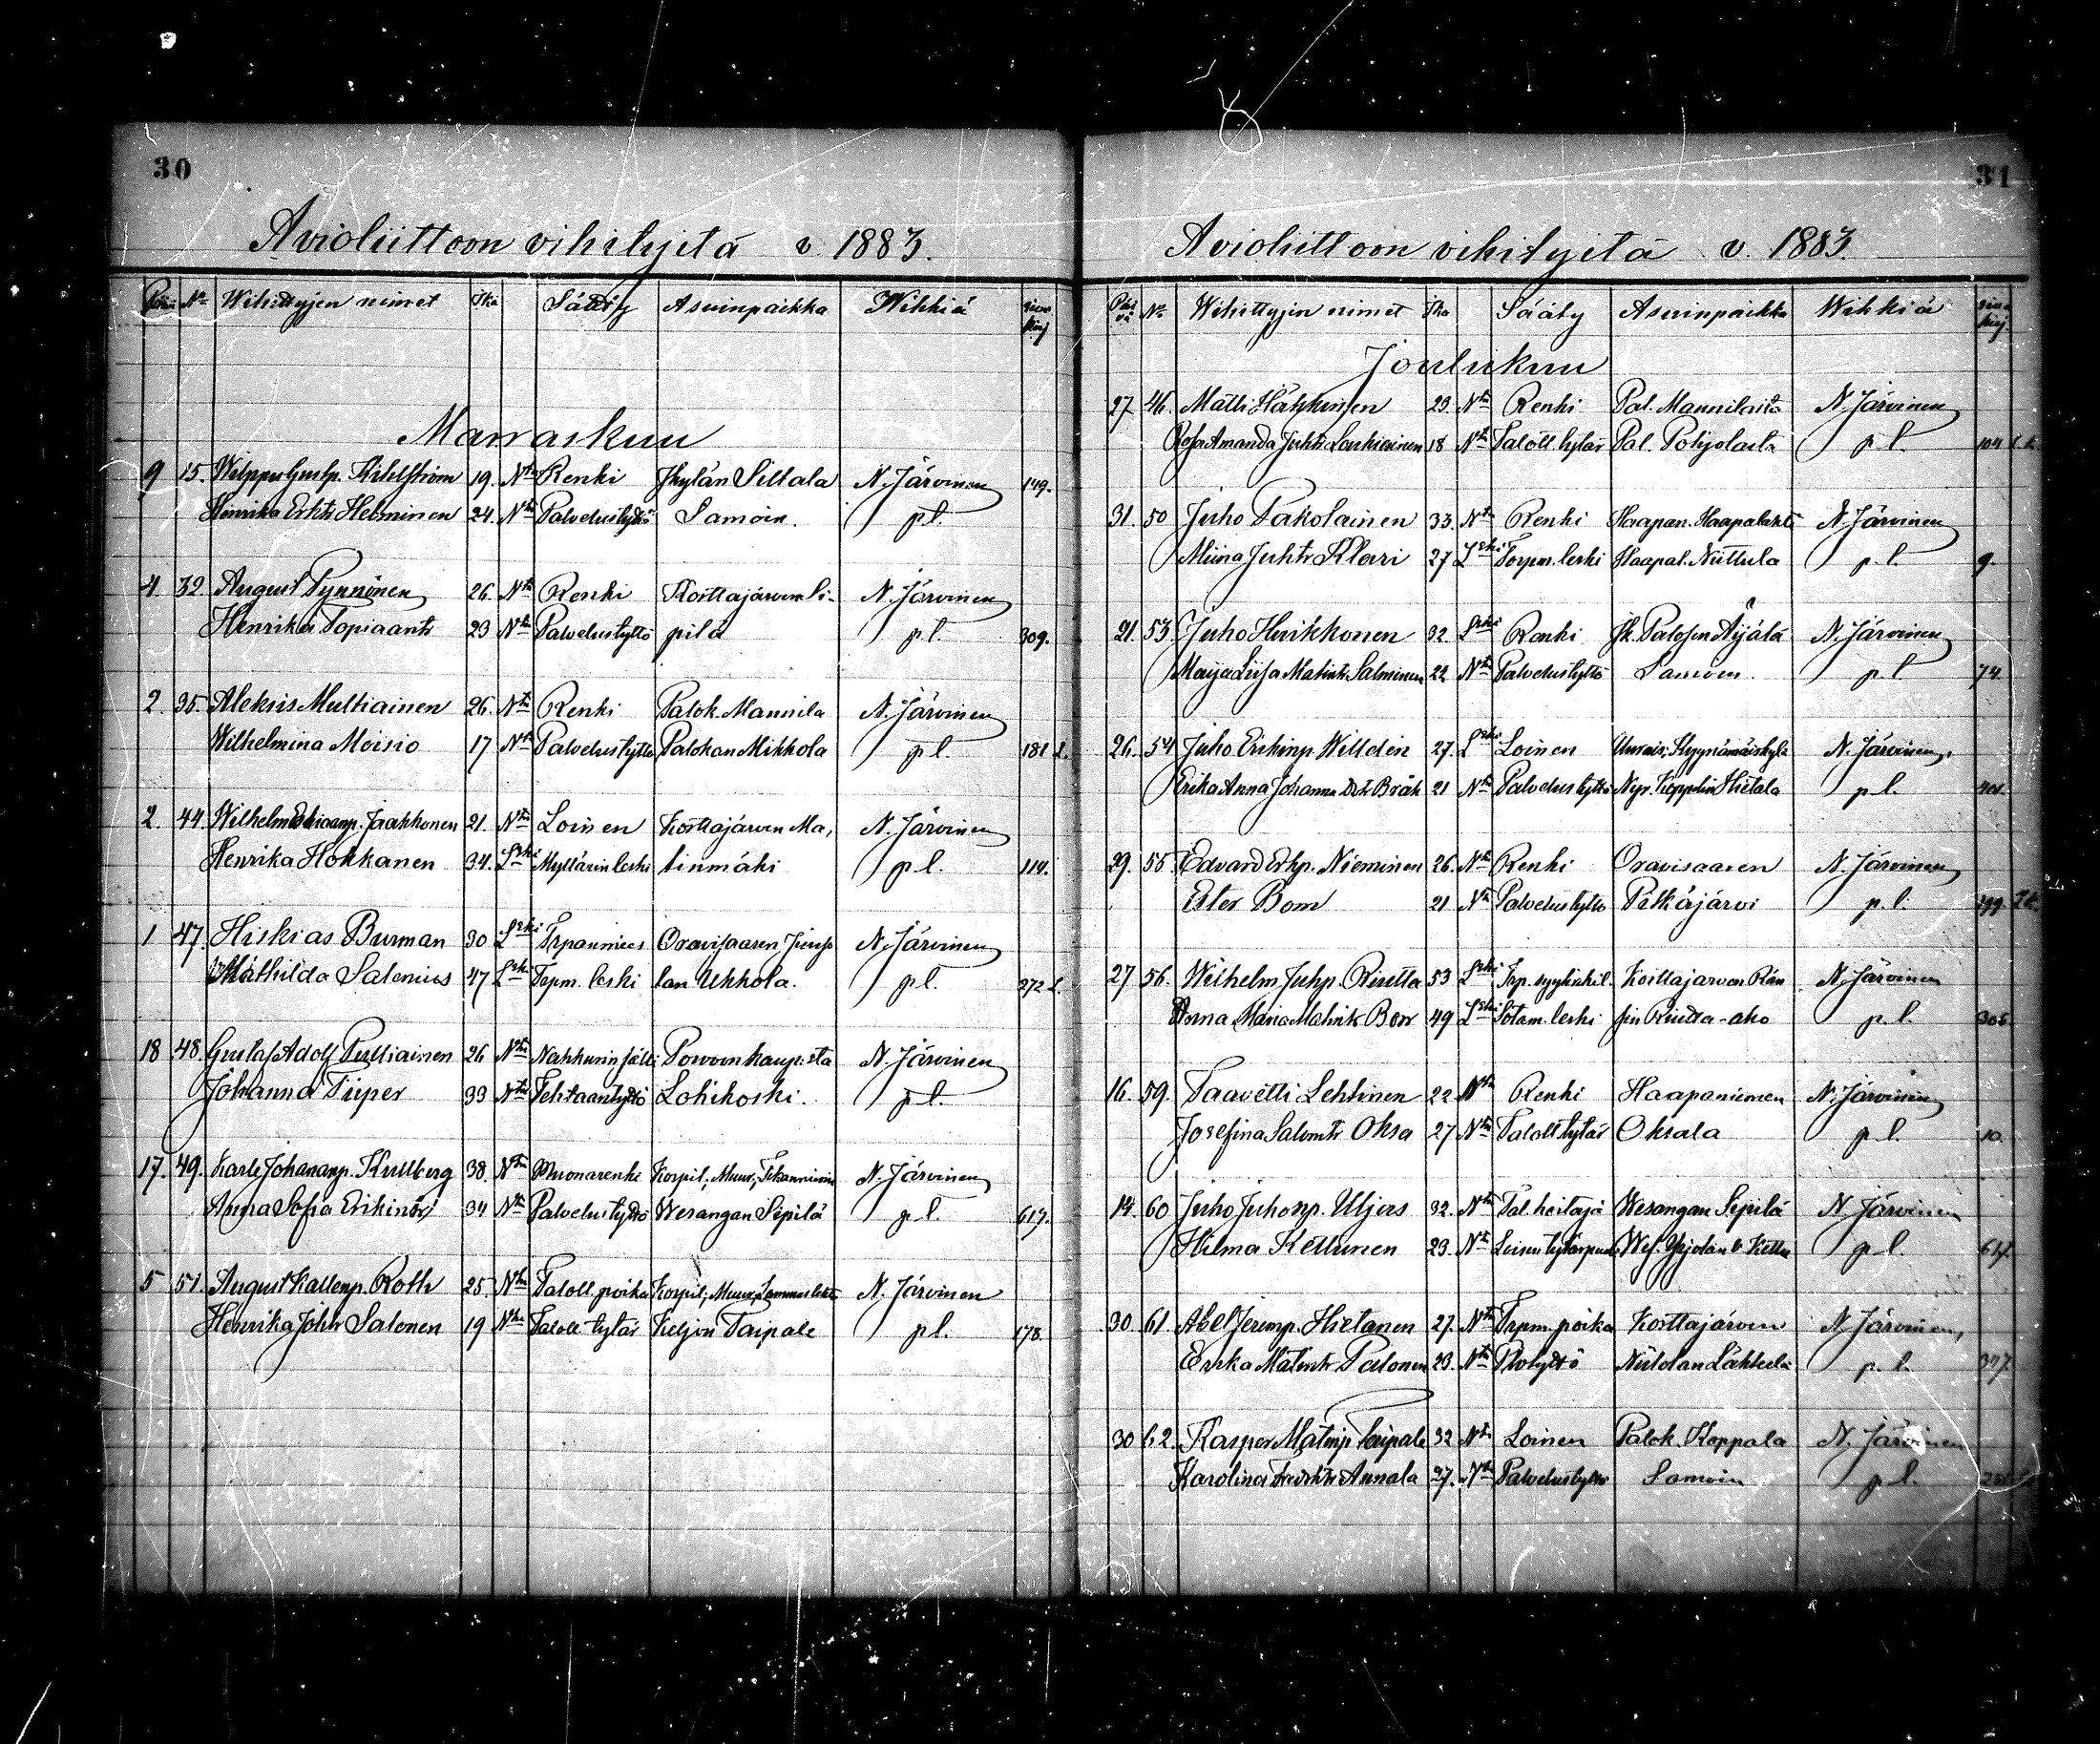 30
Avioliittoon vihityitä v. 1883.
Päivä No Wihittyjen nimet Ikä Sääty Asuinpaikka Wihkiä
Marraskuu
9 15. Wilppu Gustp. Kihlström 19. Ntn Renki Jkylän Siltala N. Järvinen 149.
Henrika Erktr Helminen 24. Ntn Palvelustyttö Samoin. p.l.
4. 32 August Pynnönen 26. Ntn Renki Kosttajärven Si-
N. Järvinen
Henrika Topiaantr 23 Ntn Palvelustyttö pilä p.l. 309.
2. 35. Aleksis Multiainen 26. Ntn Renki Palok. Mannila N. Järvinen
Wilhelmina Moisio 17 Ntn Palvelustyttö Palokan Mikkola p.l. 181 l.
2. 44 Wilhelm Jaakkonen 21. Ntn Loinen Kosttajärven Ma, N. Järvinen
Henrika Hokkanen 34. Leski Myllärin leski tinmäki p.l. 114.
1 47 Hiskias Burman 30 Leski Trpanmies Oravisaaren N. Järvinen
Mathilda Salenius 47 Leski Torpm. leski lan Ukkola. p.l. 272 l.
18 48. Gustaf Adolf Pulliainen 26 Ntn Nahkurin sälli Porvoon kaup:sta N. Järvinen
Johanna Piiper 33 Ntn Tehtaantyttö Lohikoski. p.l.
17. 49. Karle Johananp. Kullberg 38. Ntn Muonarenki Korpil; Muur; N. Järvinen
Anna Sofia Erikintr 34 Ntn Palvelustyttö Wesangan Sipilä p.l. 617.
5 51. August Kallenp. Roth 25. Ntn Taloll. poika Korpil; Muur; N. Järvinen
Henrika Johtr Salonen 19 Ntn Taloll tytär Keljon Taipale p.l. 178.
31
Avioliittoon vihityitä v. 1883.
Päivä No Wihittyjen nimet Ikä Sääty Asuinpaikka Wihkiä
Joulukuu
27 46. Matti Häkkinen 29. Ntn Renki Pal. Mannilasta N. Järvinen
Rosa Amanda Juhtr 18 Ntn Taloll tytär Pal. Pohjolasta p.l. 104
31 50 Juho Pakolainen 33. Ntn Renki Haapan. Haapalahti N. Järvinen
Miina Juhtr Klari 27 Leski Torpm. leski Haapal. Niittula p.l. 9.
21. 53. Juho Hinkkonen 32. Leski Renki Jk. Palosen Äijälä N. Järvinen
Maija Liisa Matintr Salminen 22 Ntn Palvelustyttö Samoin. p.l. 74.
26. 54 Juho Erikinp. Willdin 27. Leski Loinen N. Järvinen,
Erika Anna Johanna Bräk 21 Ntn Palvelustyttö Hietala p.l.
29. 55 Edvard Erkp. Nieminen 26. Ntn Renki Oravisaaren N. Järvinen
Ester Bom 21 Ntn Palvelustyttö Pitkäjärvi p.l.
27 56. Wilhelm Juhp. Riutta 53 Leski Kosttajärven Rän N. Järvinen
Anna Maria Matintr 49 Leski Sotam. leski sin Riutta-aho p.l. 305.
16. 59. Taavetti Lehtinen 22 Ntn Renki Haapaniemen N. Järvinen
Josefina Salomtr Oksa 27 Ntn Taloll tytär Oksala p.l. 10.
14. 60 Juho Juhonp. Uljas 32. Ntn Tal. hoitaja Wesangan Sipilä N. Järvinen
Hilma Kettunen 23. Ntn p.l.
30 61 Abel Jeremp. Hietanen 27. Ntn Trpm. poika Kosttajärven N. Järvinen,
Erika Matintr Palonen 23. Ntn Niilolan Läkkelä p.l. 347.
30 62. Kasper Matinp Taipale 32 Ntn Loinen Palok. Koppala N. Järvinen
Karolina Annala 27. Ntn Palvelustyttö Samoin p.l.